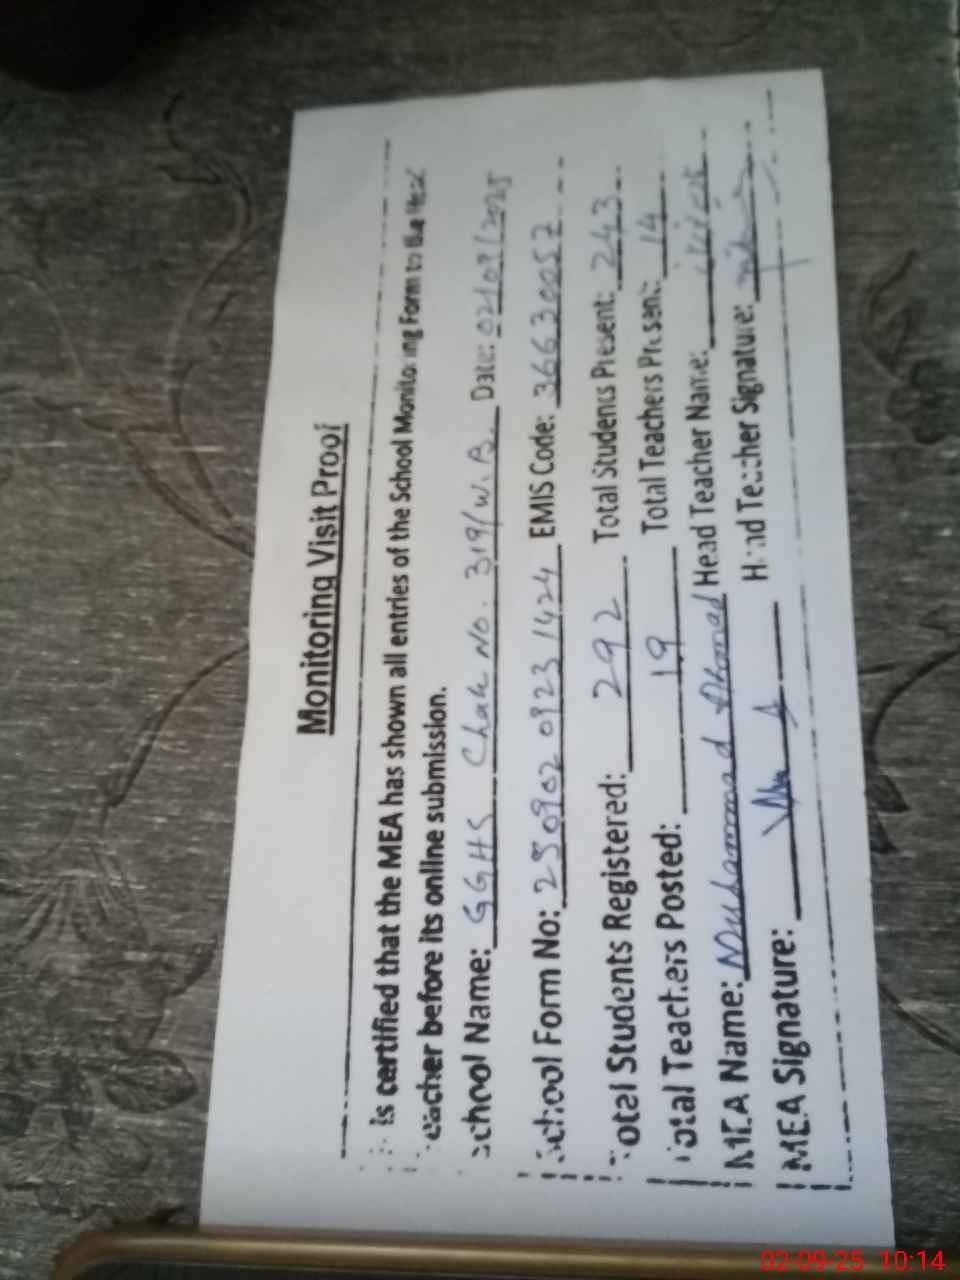 Monitoring Visit Proof
is certified that the MEA has shown all entries of the School Monitoring Form to the Head
eacher before its online submission.
School Name: GGHS Chak No. 319/W.B. Date: 02/09/2025
School Form No: 250902 0923 1424 EMIS Code: 36630057
Total Students Registered: 292 Total Students Present: 243
Total Teachers Posted: 19 Total Teachers Present: 14
MEA Name: Muhammad Ahmad Head Teacher Name:
MEA Signature: Head Teacher Signature:
02-09-25 10:14